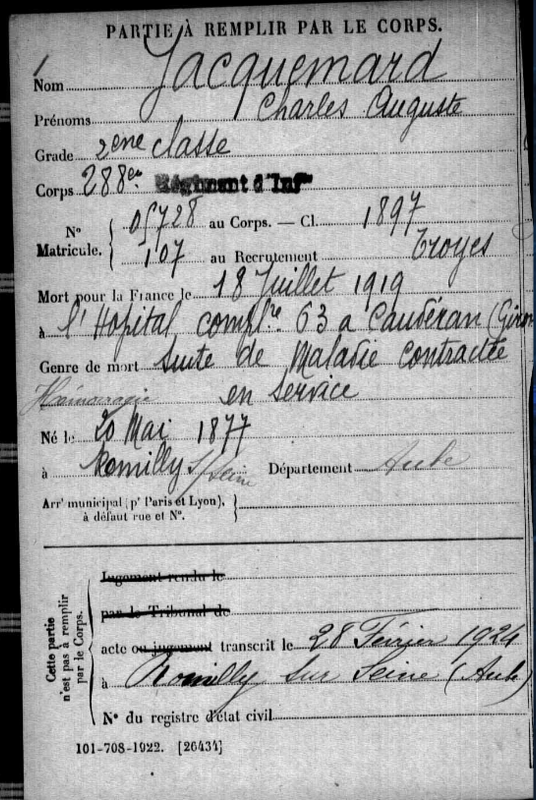 PARTIE À REMPLIR PAR LE CORPS.
Nom Jacquemard
Prénoms Charles Auguste
Grade 2ene classe
Corps 288e Régiment d'Infie
N° Matricule. { 05728 au Corps. — Cl. 1897
107 au Recrutement Troyes
Mort pour la France le 18 Juillet 1919
à l'Hopital complre 63 a Caudéran (Giron
Genre de mort Suite de Maladie contractée
Hémorragie en service
Né le 20 Mai 1877
à Romilly s/Seine Département Aube
Arrt municipal (pr Paris et Lyon),
à défaut rue et N°.
Cette partie n'est pas à remplir par le Corps.
Jugement rendu le
par le Tribunal de
acte ou jugement transcrit le 28 Février 1924
à Romilly sur Seine (Aube)
N° du registre d'état civil
101-708-1922. [26434]